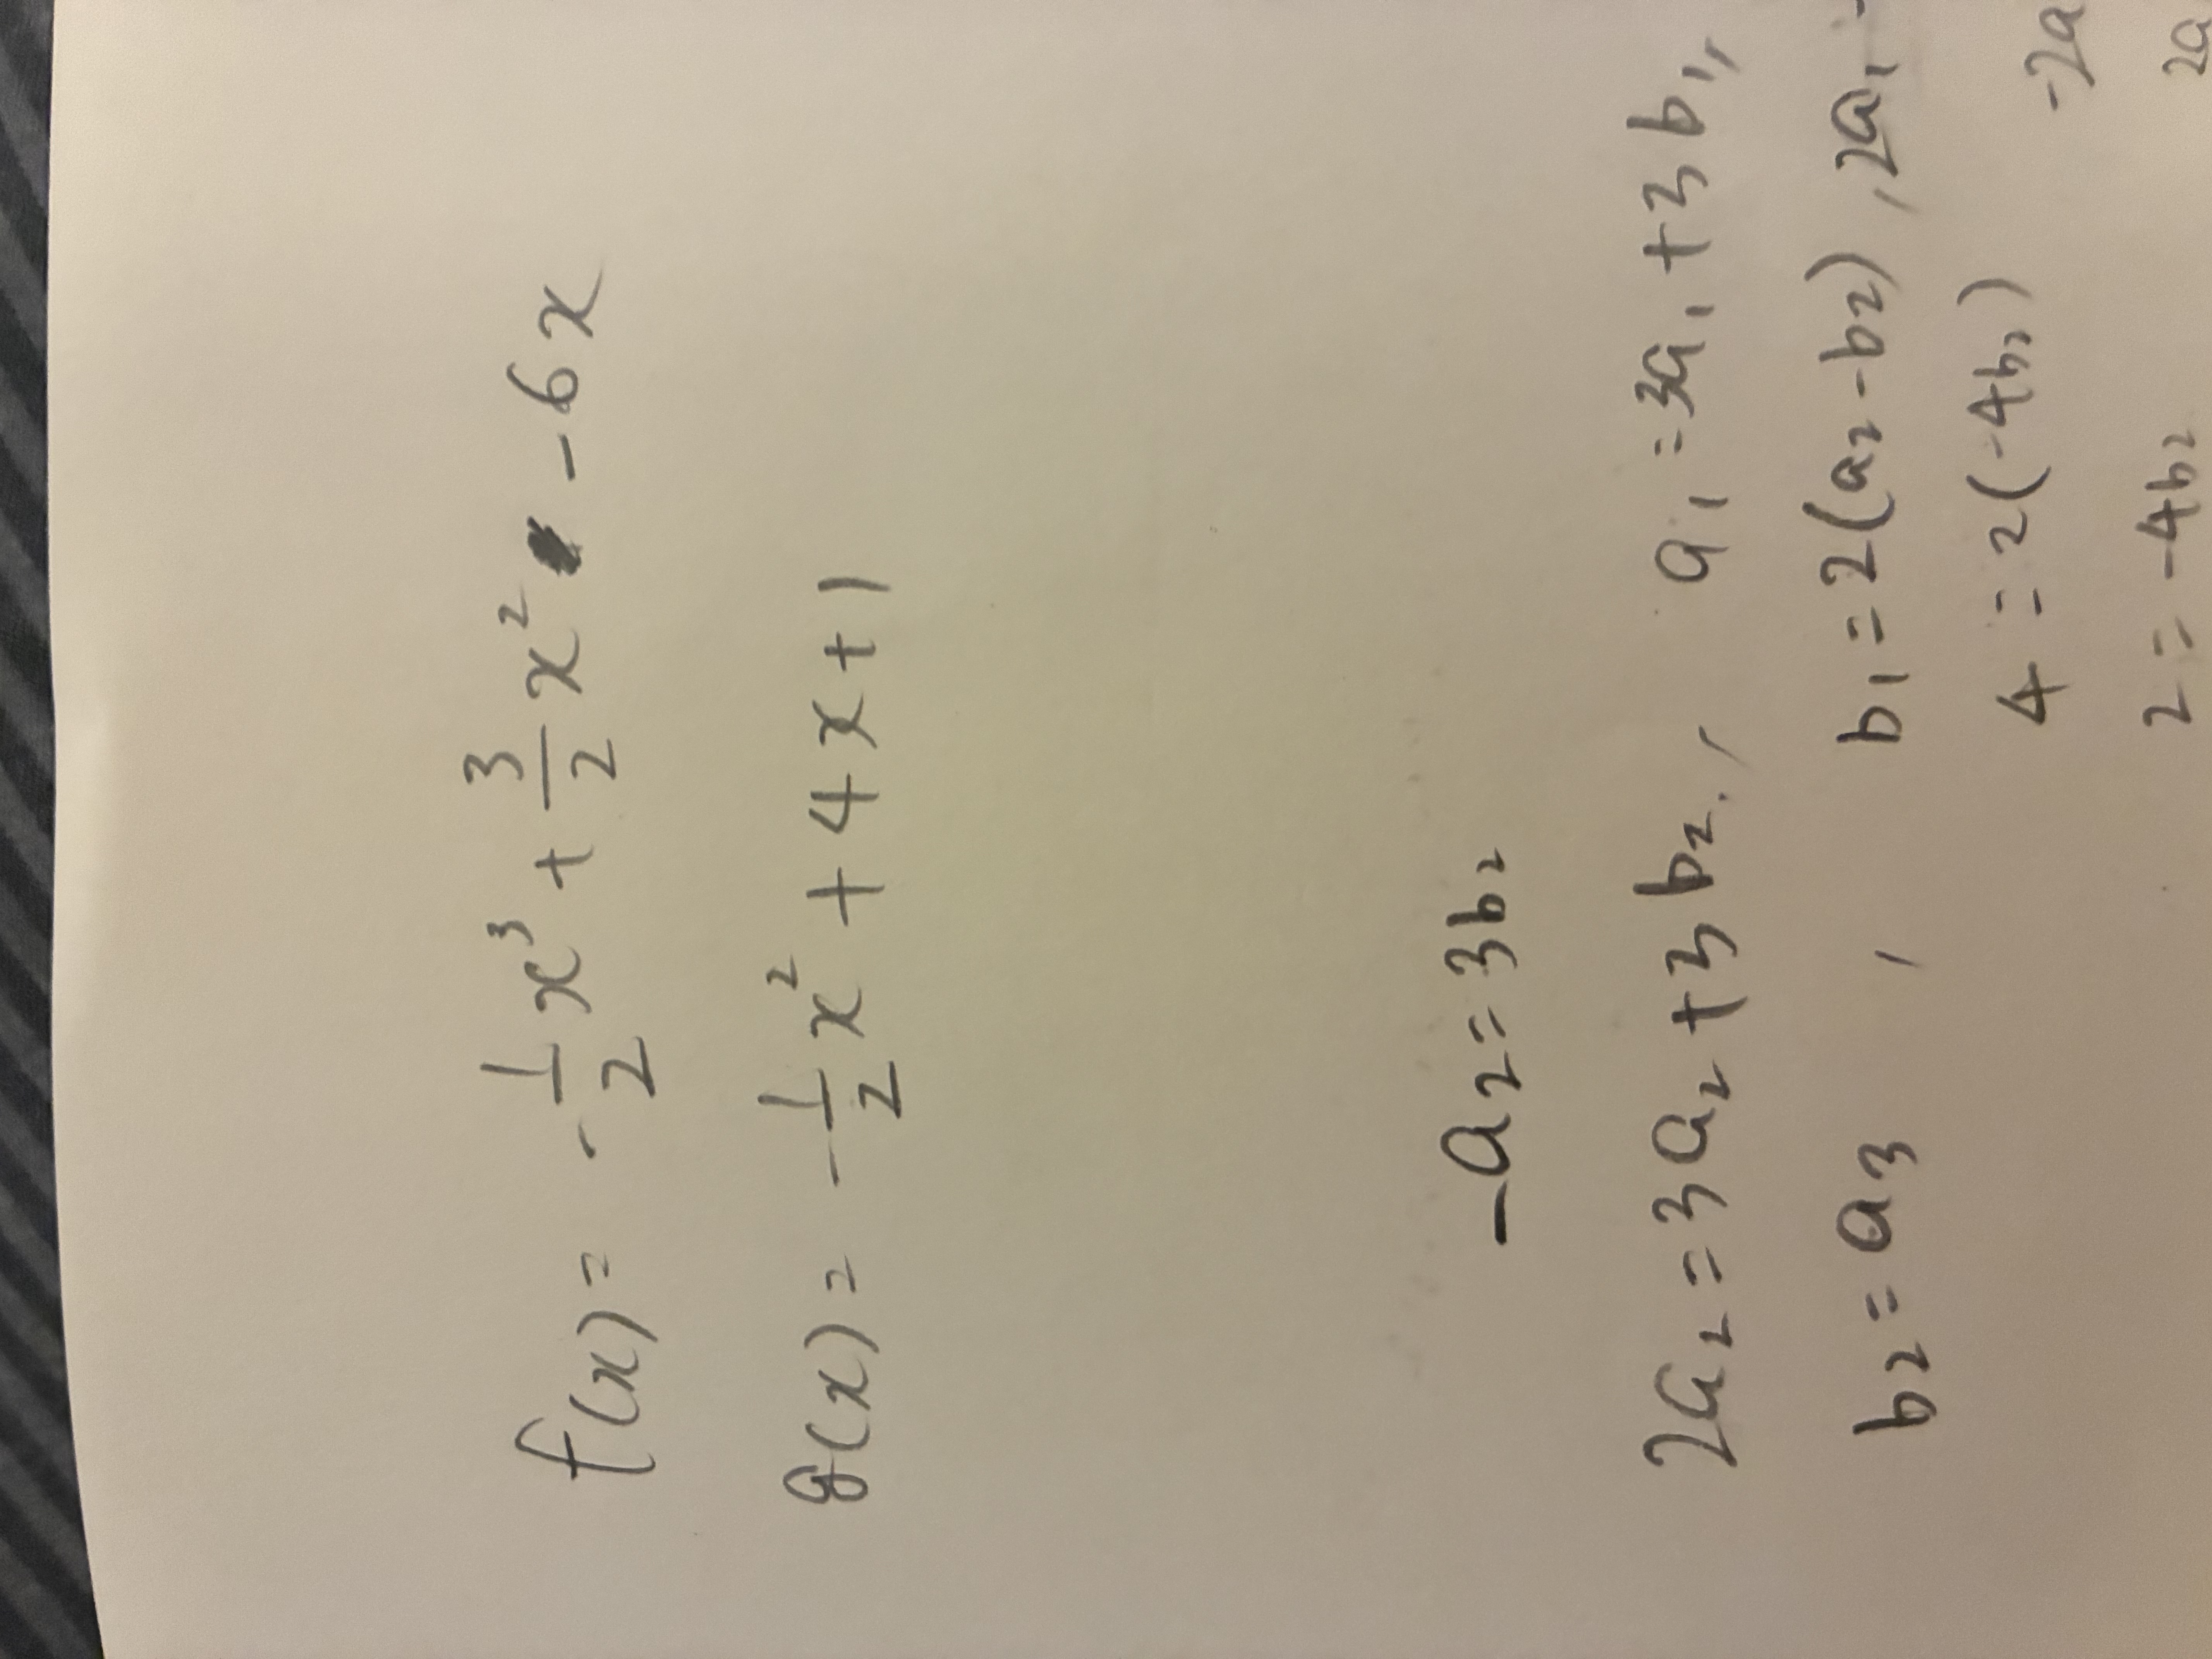 f(x) = -1/2 x³ + 3/2 x² - 6x
g(x) = -1/2 x² + 4x + 1
-a₂ = 3b₂
2a₂ = 3a₂ + 3b₂, a₁ = 3a₁ + 3b₁,
b₂ = a₃ , b₁ = 2(a₂ - b₂), 2a₁ -
4 = 2(-4b₂) -2a
2 = -4b₂ 2a